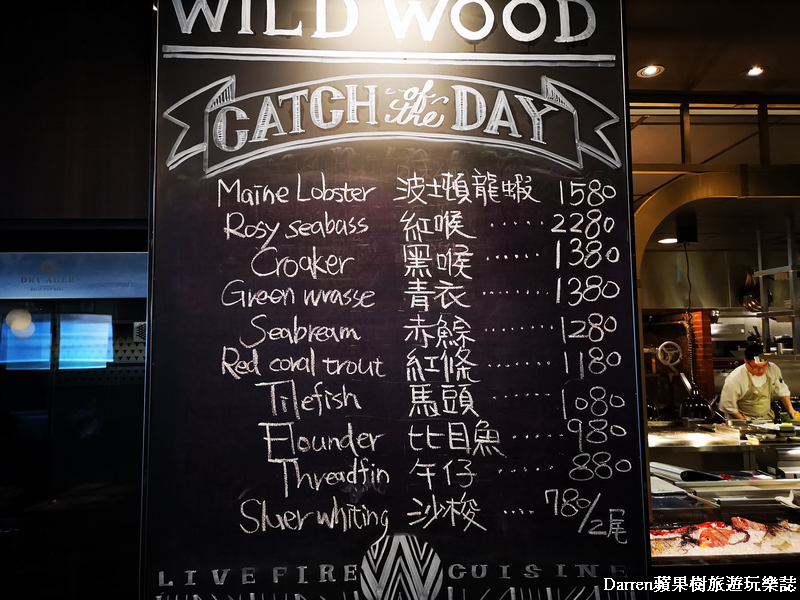 WILD WOOD
CATCH of the DAY
Maine Lobster 波士頓龍蝦 1580
Rosy seabass 紅喉 ...... 2280
Croaker 黑喉 ...... 1380
Green wrasse 青衣 ...... 1380
Seabream 赤鯮 ...... 1280
Red coral trout 紅條 ...... 1180
Tilefish 馬頭 ...... 1080
Flounder 比目魚 ...... 980
Threadfin 午仔 ...... 880
Sluer whiting 沙梭 .... 780/2尾
LIVE FIRE CUISINE
DRY AGER
Darren蘋果樹旅遊玩樂誌